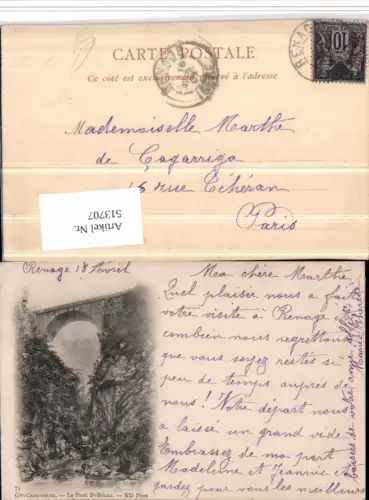 CARTE POSTALE
Ce côté est exclusivement réservé à l'adresse
RENAG
10
Mademoiselle Marthe
de Çagarriga
15 rue Téhéran
Paris
Artikel Nr.
513707
Renage 18 Avril
Ma chère Marthe
Quel plaisir nous a fait
votre visite à Renage &
combien nous regrettons
que vous soyez restés si
peu de temps auprès de
nous! Votre départ nous
a laissé un grand vide.
Embrassez de ma part
Madeleine et Jeannie et
gardez pour vous les meilleurs
baisers de votre amie
75
Gde-Chartreuse. — Le Pont St-Bruno. — ND Phot